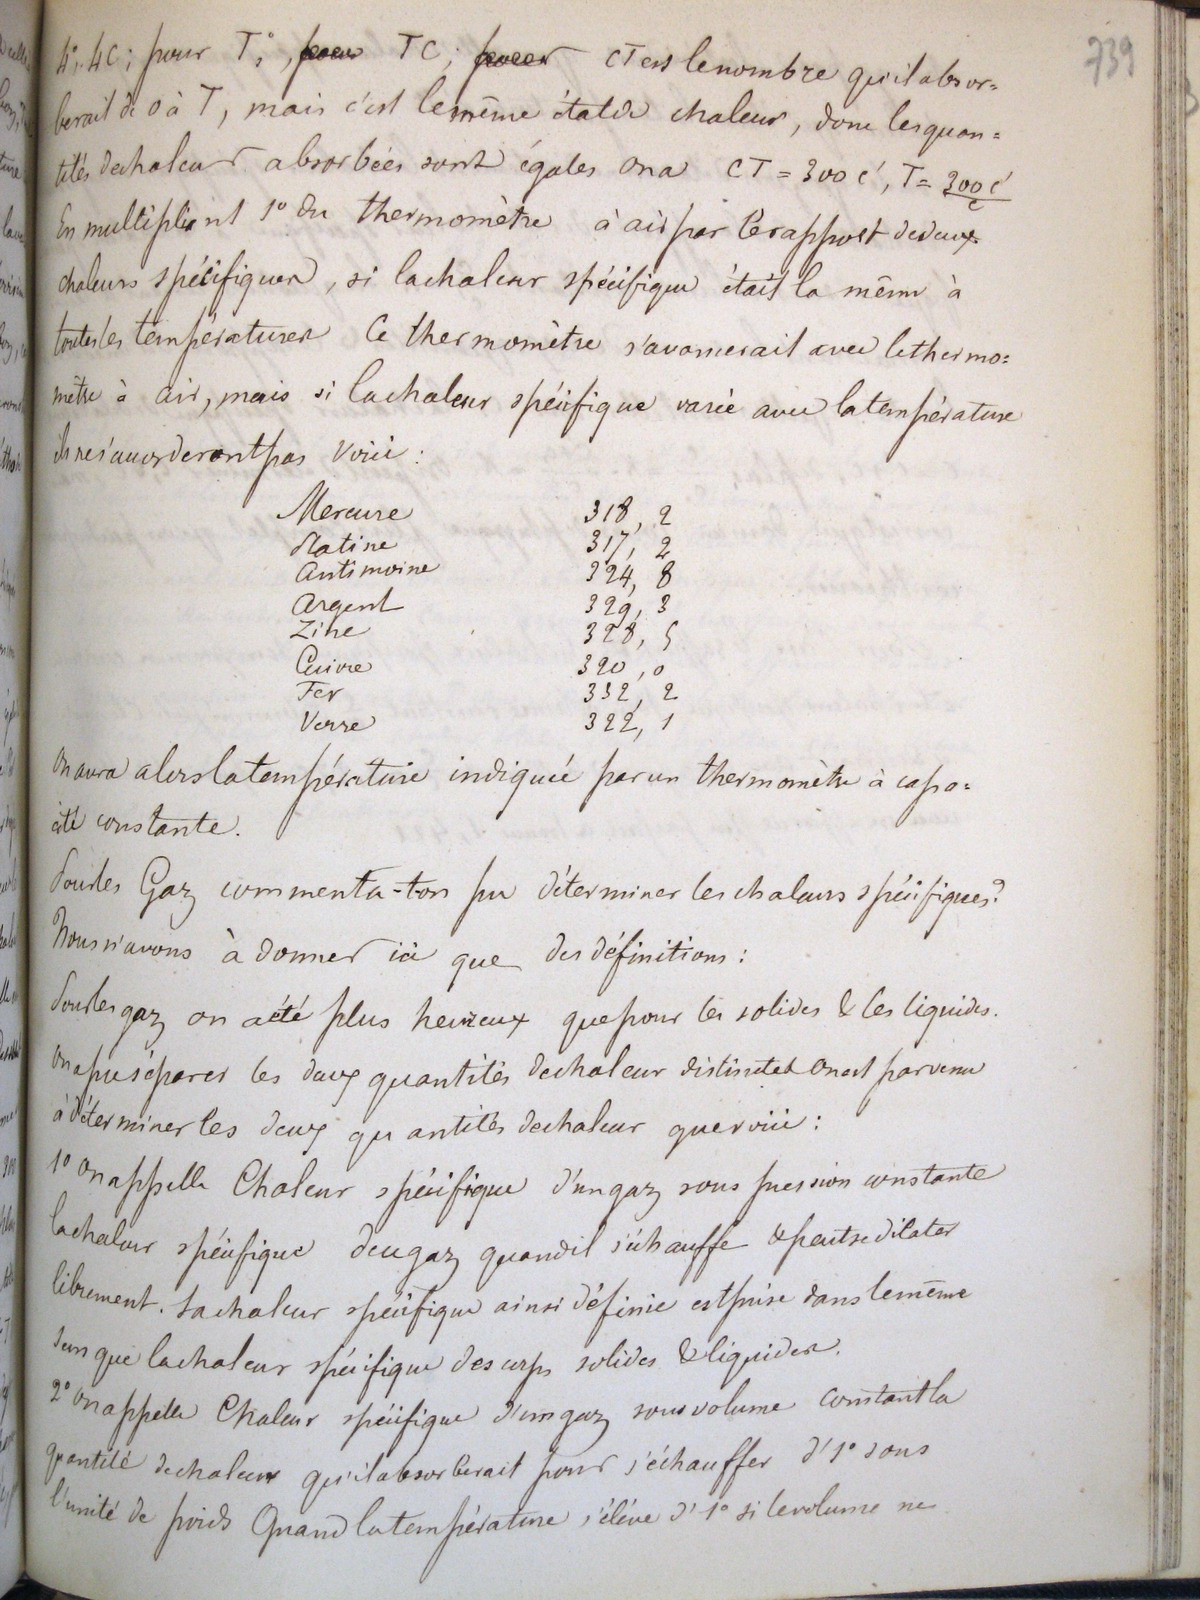 739
4°, 4C; pour T°, pour TC; pour CT est le nombre qu'il absor=
berait de 0 à T, mais c'est le même état de chaleur, donc les quan=
tités de chaleur absorbées sont égales on a CT = 300 c', T = 300 c'/c
En multipliant 1° du thermomètre à air par le rapport de deux
chaleurs spécifiques, si la chaleur spécifique était la même à
toutes les températures Ce thermomètre s'avancerait avec le thermo=
mètre à air, mais si la chaleur spécifique varie avec la température
ils ne s'accorderont pas voici :
Mercure 318, 2
Platine 317, 2
Antimoine 324, 8
Argent 329, 3
Zinc 328, 5
Cuivre 320, 0
Fer 332, 2
Verre 322, 1
On aura alors la température indiquée par un thermomètre à capa=
cité constante.
Pour les Gaz comment a-t-on pu déterminer les chaleurs spécifiques?
Nous n'avons à donner ici que des définitions :
Pour les gaz on a été plus heureux que pour les solides & les liquides.
On a pu séparer les deux quantités de chaleur distinctes On est parvenu
à déterminer les deux quantités de chaleur que voici :
1° On appelle Chaleur spécifique d'un gaz sous pression constante
la chaleur spécifique de ce gaz quand il s'échauffe & peut se dilater
librement. La chaleur spécifique ainsi définie est prise dans le même
sens que la chaleur spécifique des corps solides & liquides.
2° On appelle Chaleur spécifique d'un gaz sous volume constant la
quantité de chaleur qu'il absorberait pour s'échauffer d'1° sous
l'unité de poids Quand la température s'élève d'1° si le volume ne